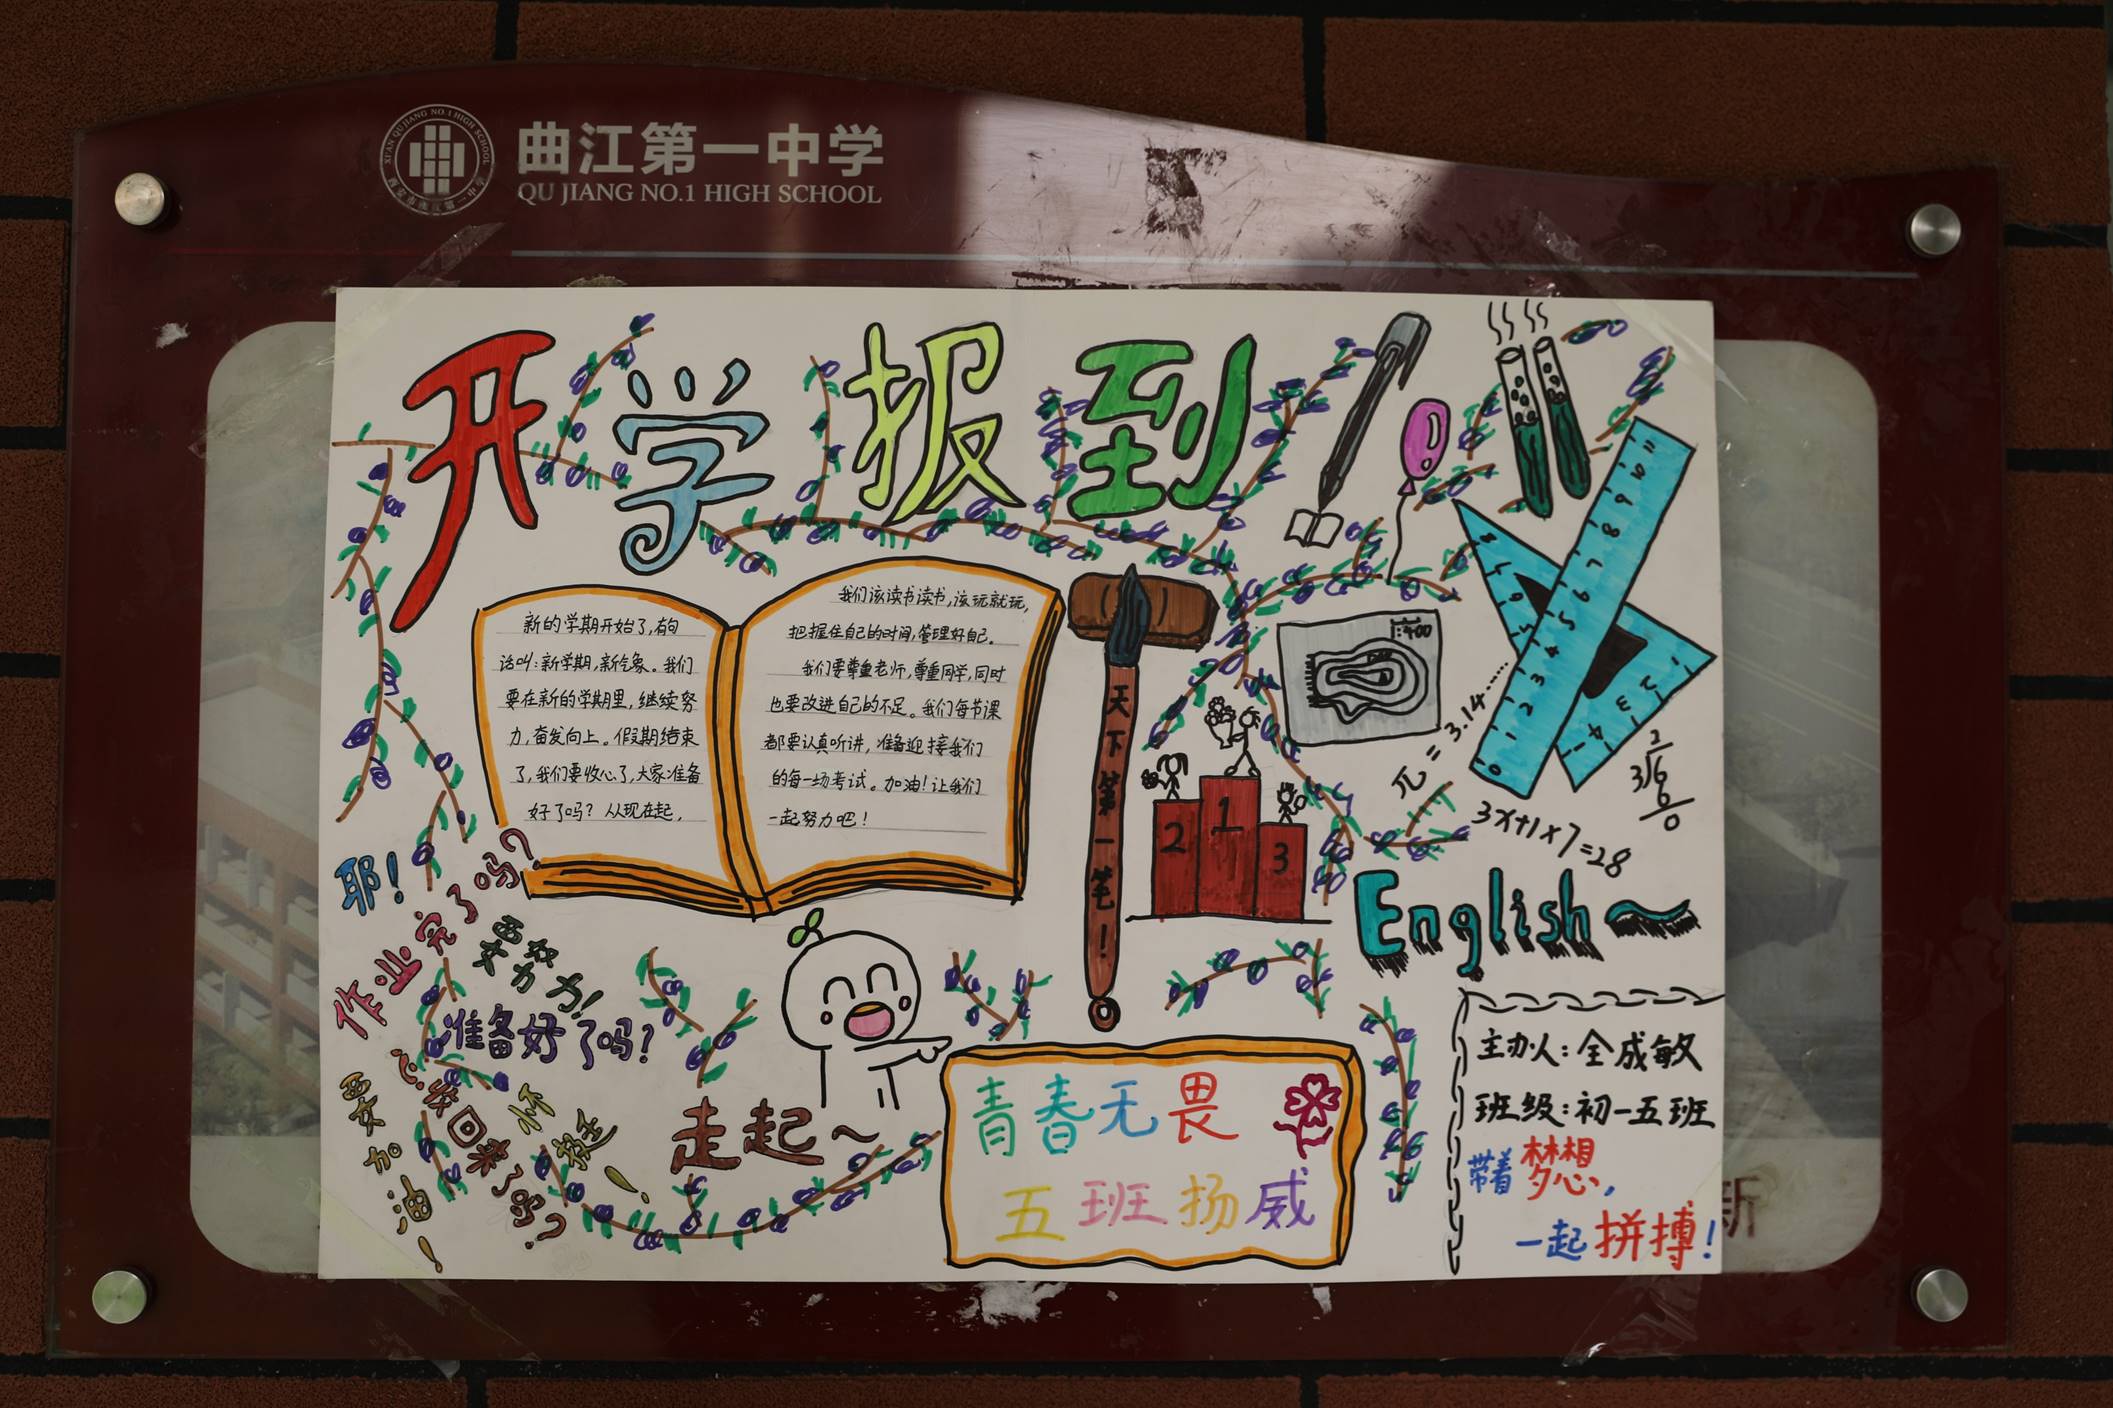 XI'AN QUJIANG NO.1 HIGH SCHOOL
曲江第一中学
QU JIANG NO.1 HIGH SCHOOL
开学报到
新的学期开始了,有句
话叫:新学期,新气象。我们
要在新的学期里,继续努
力,奋发向上。假期结束
了,我们要收心了,大家准备
好了吗?从现在起,
我们该读书读书,该玩就玩,
把握住自己的时间,管理好自己。
我们要尊重老师,尊重同学,同时
也要改进自己的不足。我们每节课
都要认真听讲,准备迎接我们
的每一场考试。加油!让我们
一起努力吧!
天下第一笔!
1:400
2
1
3
π=3.14……
3x+1×7=28
English~
耶!
作业完了吗?
要努力!
准备好了吗?
心收回来了吗?
要加油!
走起~
青春无畏
五班扬威
主办人:全成敏
班级:初一五班
带着梦想,
一起拼搏!
新